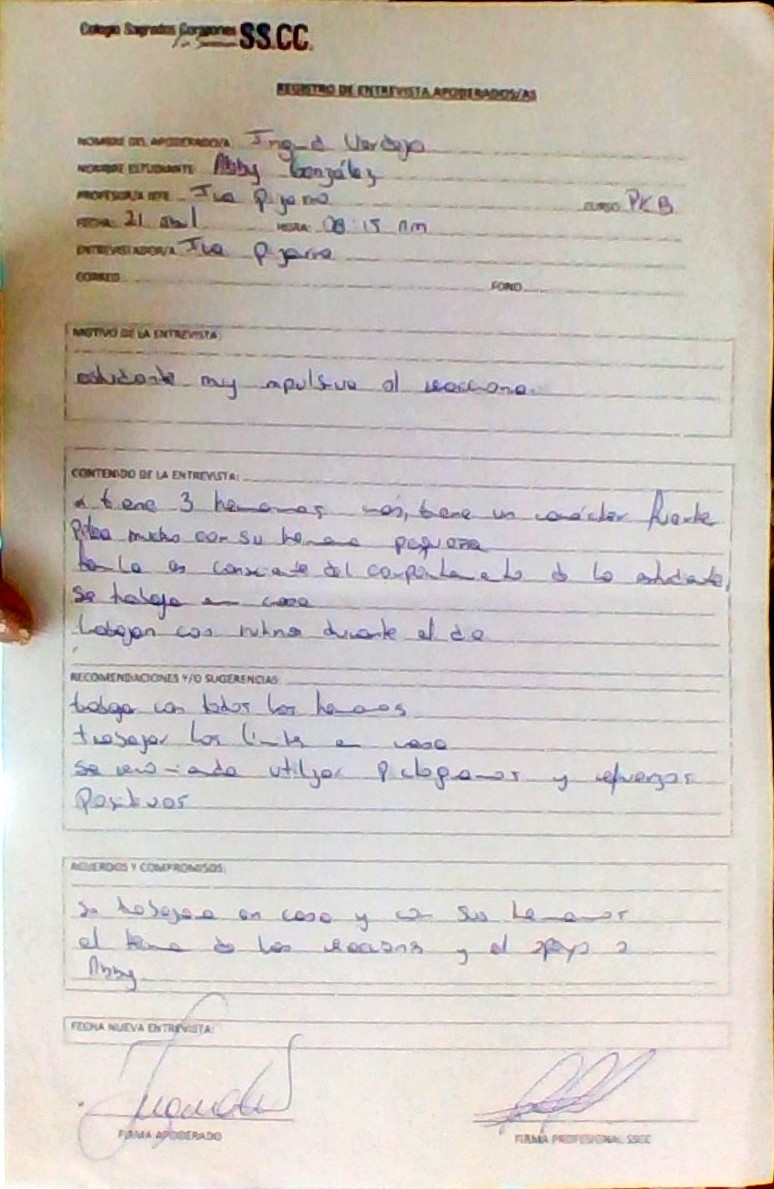 Colegio Sagrados Corazones SS.CC.
REGISTRO DE ENTREVISTA APODERADOS/AS
NOMBRE DEL APODERADO/A: Ingrid Verdejo
NOMBRE ESTUDIANTE: Abby González
PROFESOR/A JEFE: Iva Pizarro CURSO: PKB
FECHA: 21 abril HORA: 08:15 am
ENTREVISTADOR/A: Iva Pizarro
CORREO: FONO:
MOTIVO DE LA ENTREVISTA:
estudiante muy impulsiva al reaccionar.
CONTENIDO DE LA ENTREVISTA:
tiene 3 hermanas más, tiene un carácter fuerte
Pelea mucho con su hermana pequeña
familia es consciente del comportamiento de la estudiante,
se trabaja en casa
trabajan con rutinas durante el día
RECOMENDACIONES Y/O SUGERENCIAS:
trabajar con todos los hermanos
trabajar los límites en casa
se recomienda utilizar pictogramas y refuerzos
positivos
ACUERDOS Y COMPROMISOS:
se trabajara en casa y con sus hermanos
el tema de las reacciones y el apoyo a
Abby
FECHA NUEVA ENTREVISTA:
FIRMA APODERADO FIRMA PROFESIONAL SSCC